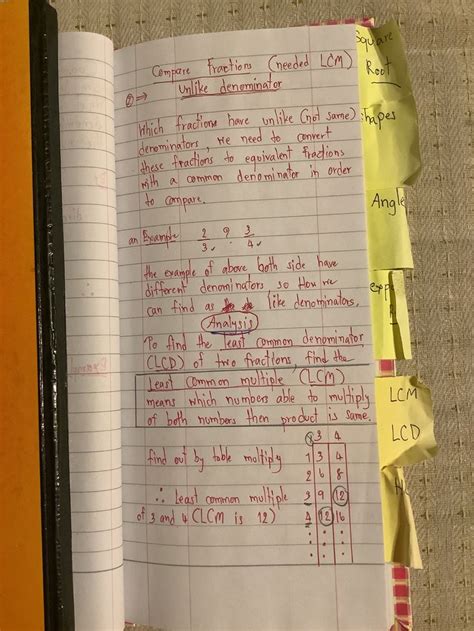 Compare fractions (needed LCM)
Unlike denominator
② ⟹
Which fractions have unlike (not same)
denominators, we need to convert
these fractions to equivalent fractions
with a common denominator in order
to compare.
an Example 2/3 ? 3/4
the example of above both side have
different denominators so How we
can find as like denominators.
Analysis
To find the least common denominator
(LCD) of two fractions, find the
Least common multiple (LCM)
means which numbers able to multiply
of both numbers then product is same.
find out by table multiply
∴ Least common multiple
of 3 and 4 (LCM is 12)
3 4
1 3 4
2 6 8
3 9 12
4 12 16
Square
Root
Shapes
Angle
LCM
LCD